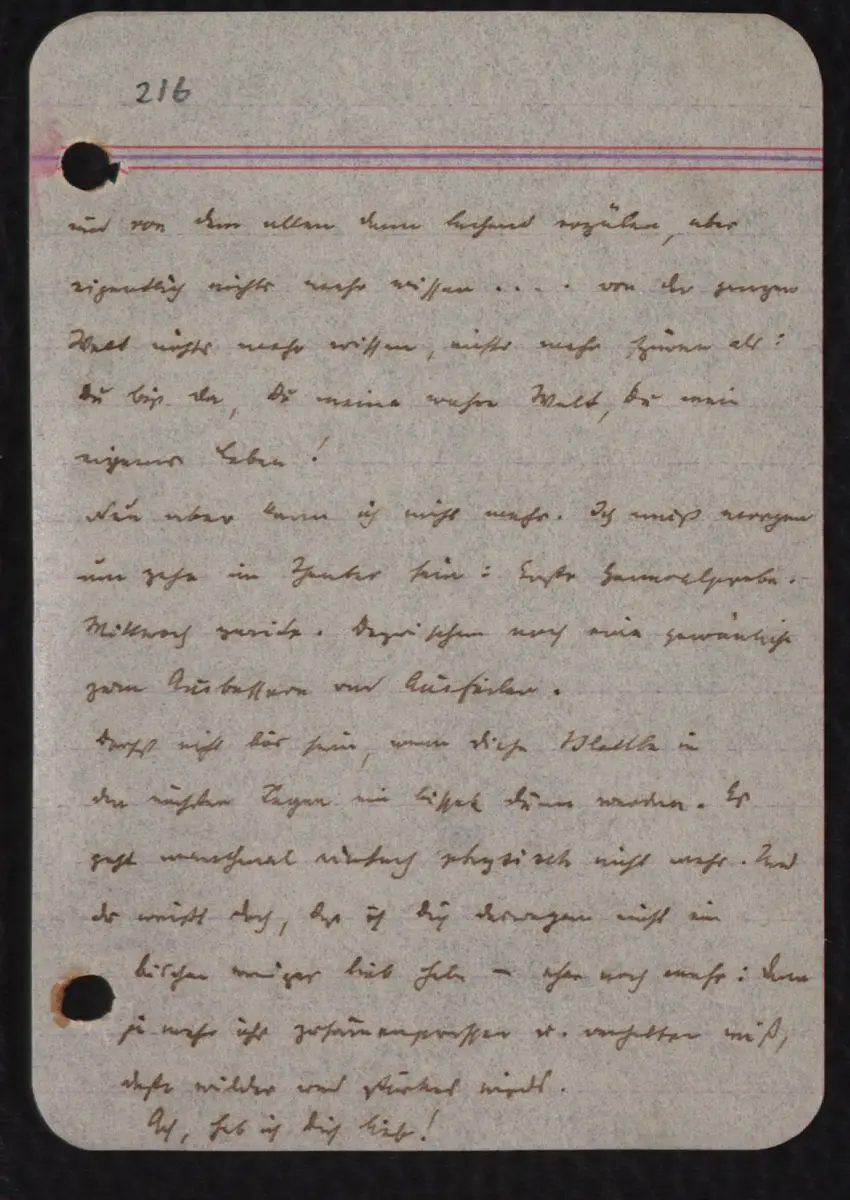 216
und von dem allen dann lachend erzälen, aber
eigentlich nichts mehr wissen . . . . von der ganzen
Welt nichts mehr wissen, nichts mehr als :
Du bist da, Du meine wahre Welt, Du mein
eigenes Leben !
Nun aber kann ich nicht mehr. Ich muß morgen
um zehn im Theater sein : Erste Generalprobe.
Mittwoch zweite. Dazwischen noch eine gewönliche
zum Ausbessern und Ausfeilen.
Darfst nicht bös sein, wenn diese Blattln in
den nächsten Tagen ein bissel dünn werden. Es
geht manchmal einfach physisch nicht mehr. Und
du weißt doch, daß ich dich deswegen nicht ein
bischen weniger lieb habe – eher noch mehr : denn
je mehr ichs zusammenpressen u. verhalten muß,
desto wilder und stärker wirds.
Ach, hab ich Dich lieb !